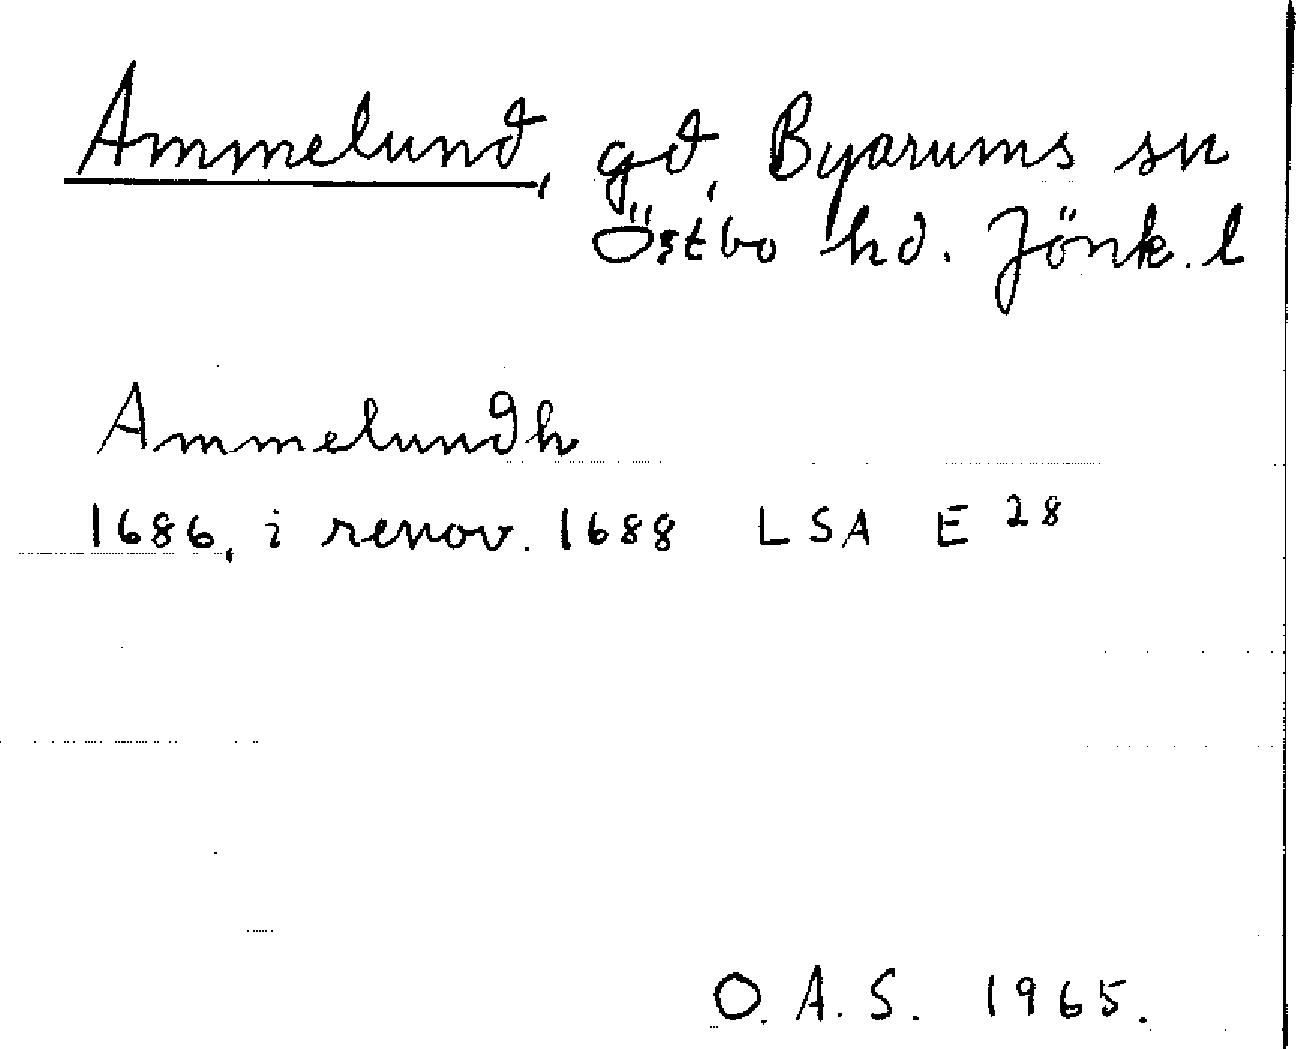 Ammelund, gd, Byarums sn
Östbo hd. Jönk. l
Ammelundh
1686, i renov. 1688 LSA E 28
O. A. S. 1965.